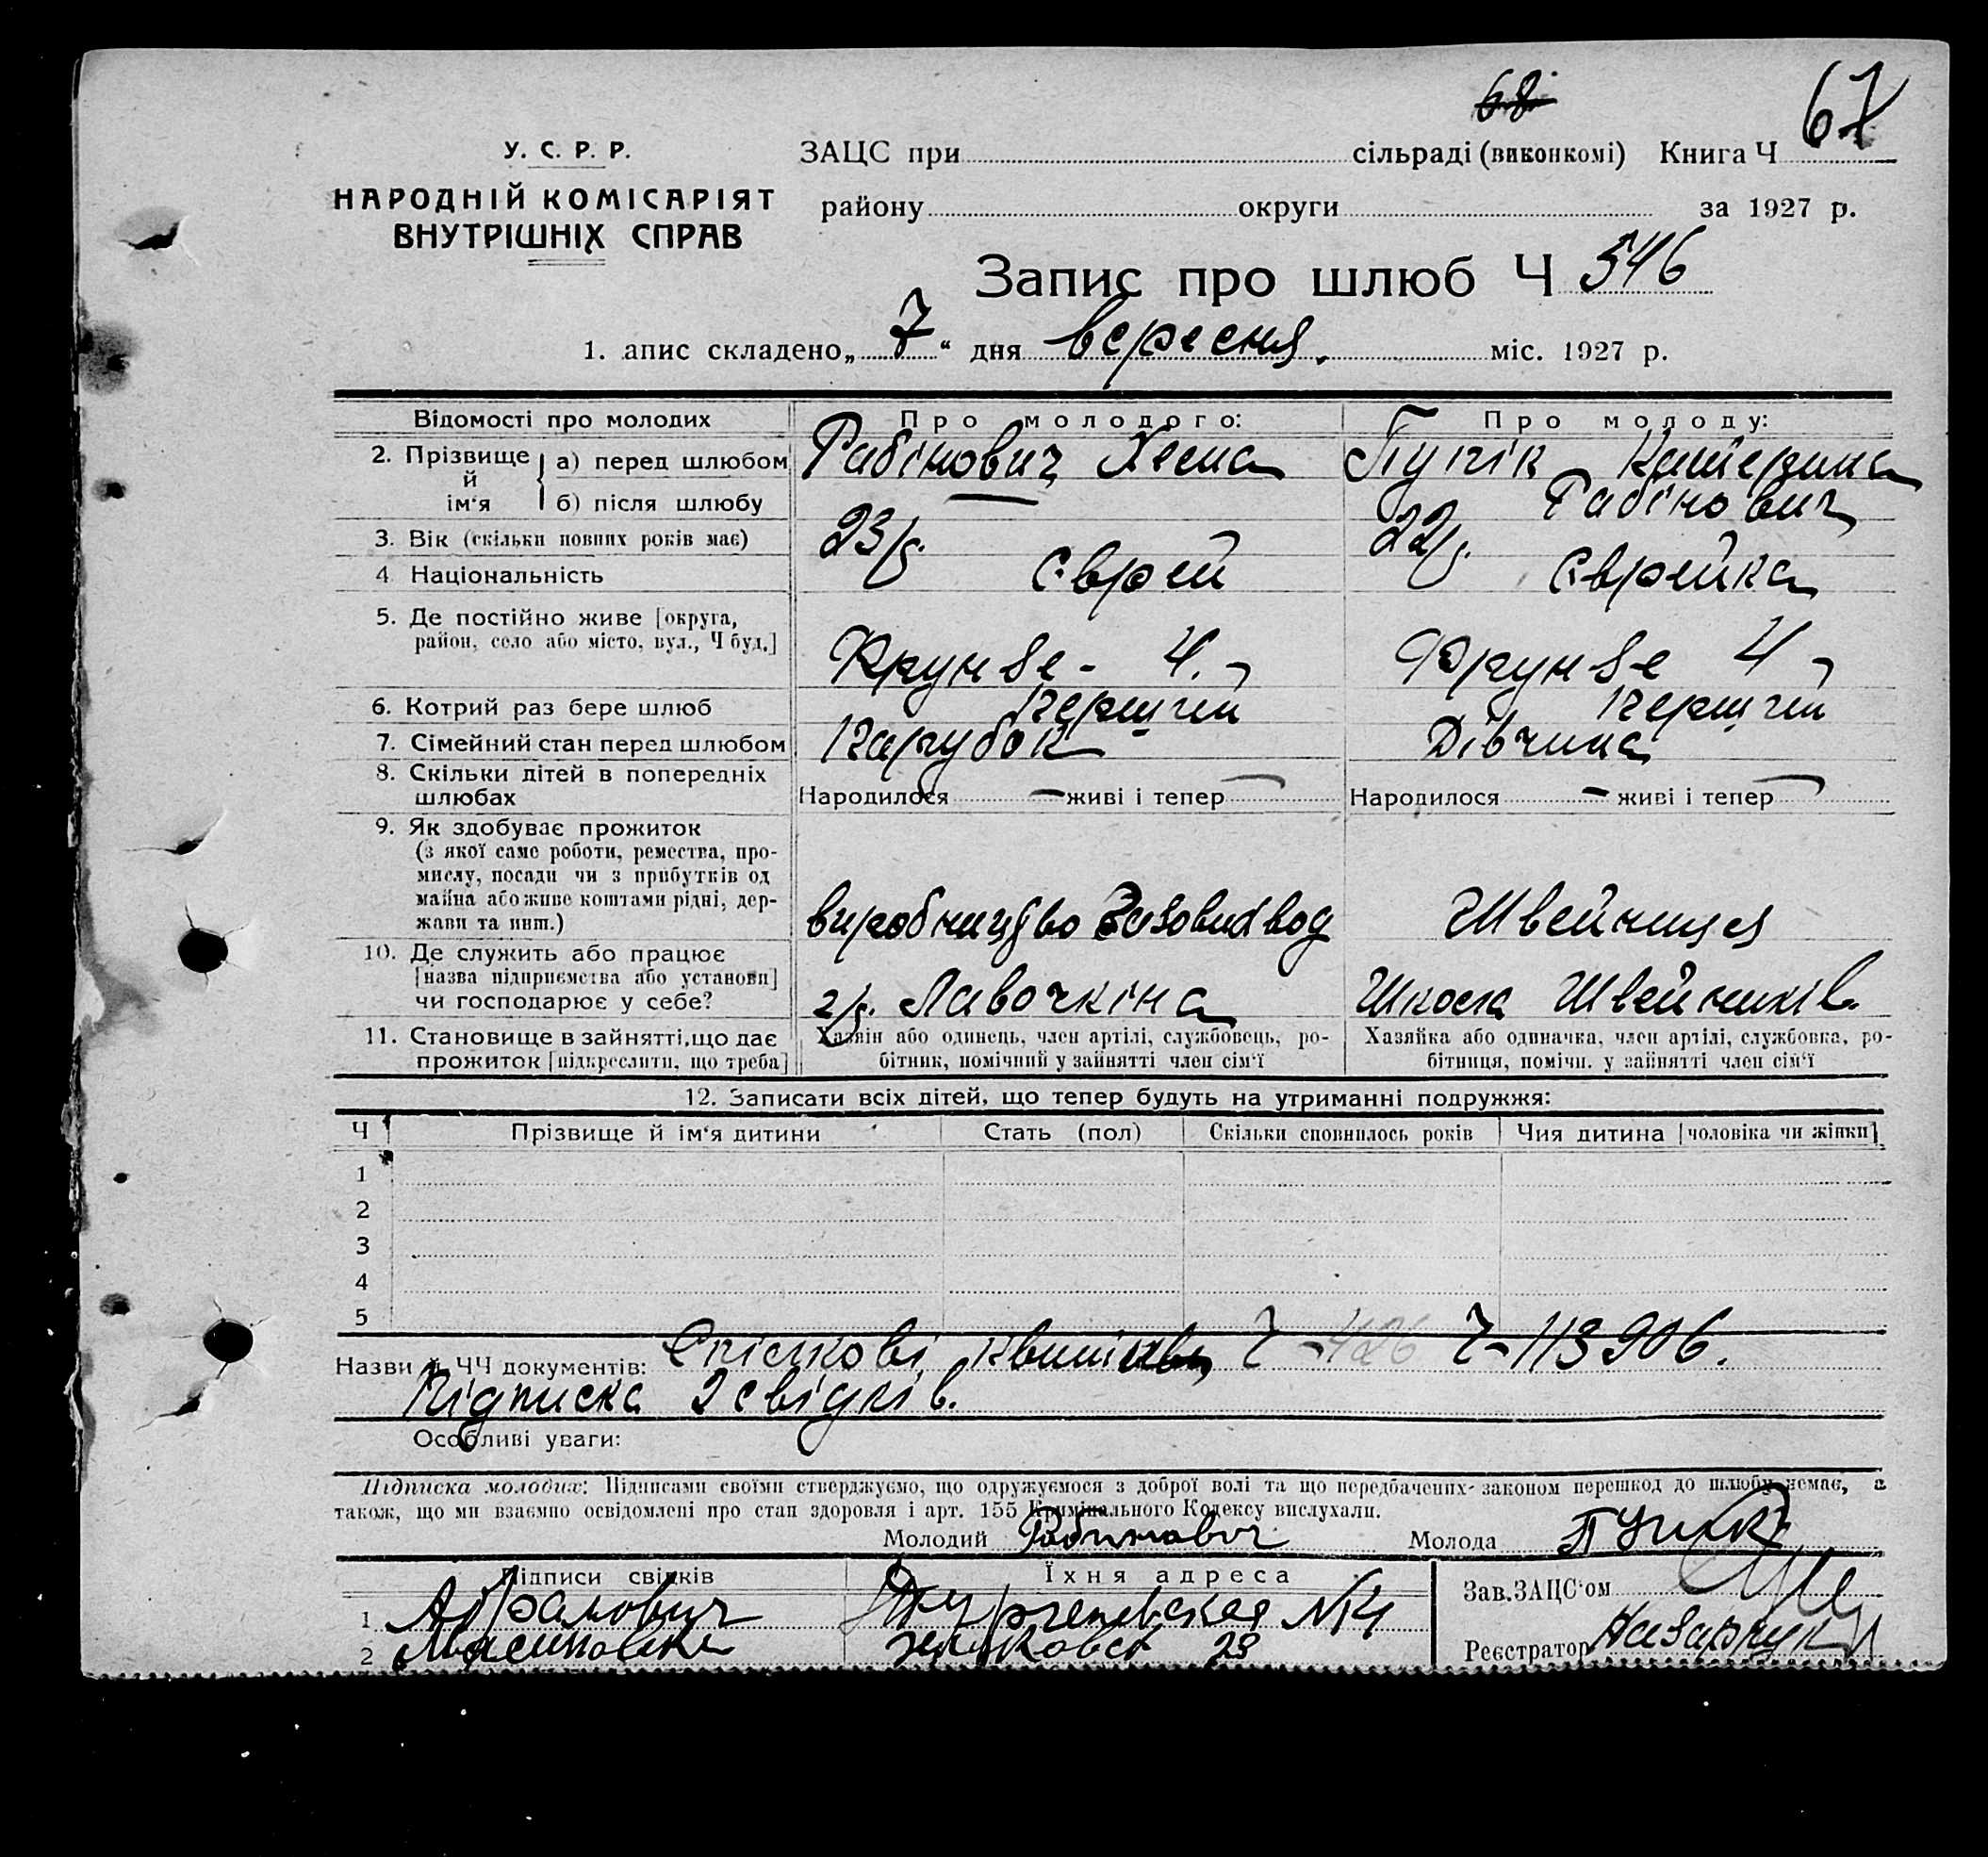 68
67
У. С. Р. Р.
НАРОДНІЙ КОМІСАРІЯТ
ВНУТРІШНІХ СПРАВ
ЗАЦС при сільраді (виконкомі) Книга Ч
району округи за 1927 р.
Запис про шлюб Ч 546
1. апис складено „ 7 “ дня вересня. міс. 1927 р.
Відомості про молодих Про молодого: Про молоду:
2. Прізвище й ім‘я а) перед шлюбом Рабінович Хема Пупік Катерина
б) після шлюбу Рабінович
3. Вік (скільки повних років має) 23 р. 22 р.
4. Національність Єврей Єврейка
5. Де постійно живе [округа,
район, село або місто, вул., Ч буд.] Фрунзе - 4. Фрунзе 4
6. Котрий раз бере шлюб перший перший
7. Сімейний стан перед шлюбом Парубок Дівчина
8. Скільки дітей в попередніх
шлюбах Народилося — живі і тепер — Народилося — живі і тепер —
9. Як здобуває прожиток
(з якої саме роботи, ремества, про-
мислу, посади чи з прибутків од
майна або живе коштами рідні, дер-
жави та инш.) виробництво вод Швейниця
10. Де служить або працює
[назва підприємства або установи]
чи господарює у себе? гр. Лавочкіна Школа Швейників.
11. Становище в зайнятті, що дає
прожиток [підкреслити, що треба]
Хазяїн або одинець, член артілі, службовець, ро-
бітник, помічний у зайнятті член сім‘ї
Хазяйка або одиначка, член артілі, службовка, ро-
бітниця, помічн. у зайнятті член сім‘ї
12. Записати всіх дітей, що тепер будуть на утриманні подружжя:
Ч Прізвище й ім‘я дитини Стать (пол) Скільки сповнилось років Чия дитина [чоловіка чи жінки]
1
2
3
4
5
Назви й ЧЧ документів: Спілкові Ч - 426 Ч - 113906.
Підписка 2 свідків.
Особливі уваги:
Підписка молодих: Підписами своїми стверджуємо, що одружуємося з доброї волі та що передбачених законом перешкод до шлюбу немає, а
також, що ми взаємно освідомлені про стан здоровля і арт. 155 Кримінального Кодексу вислухали.
Молодий Рабинович Молода Пупик
Підписи свідків Їхня адреса Зав. ЗАЦС‘ом
1 Абрамович №4
2 23 Реєстратор Назарчук